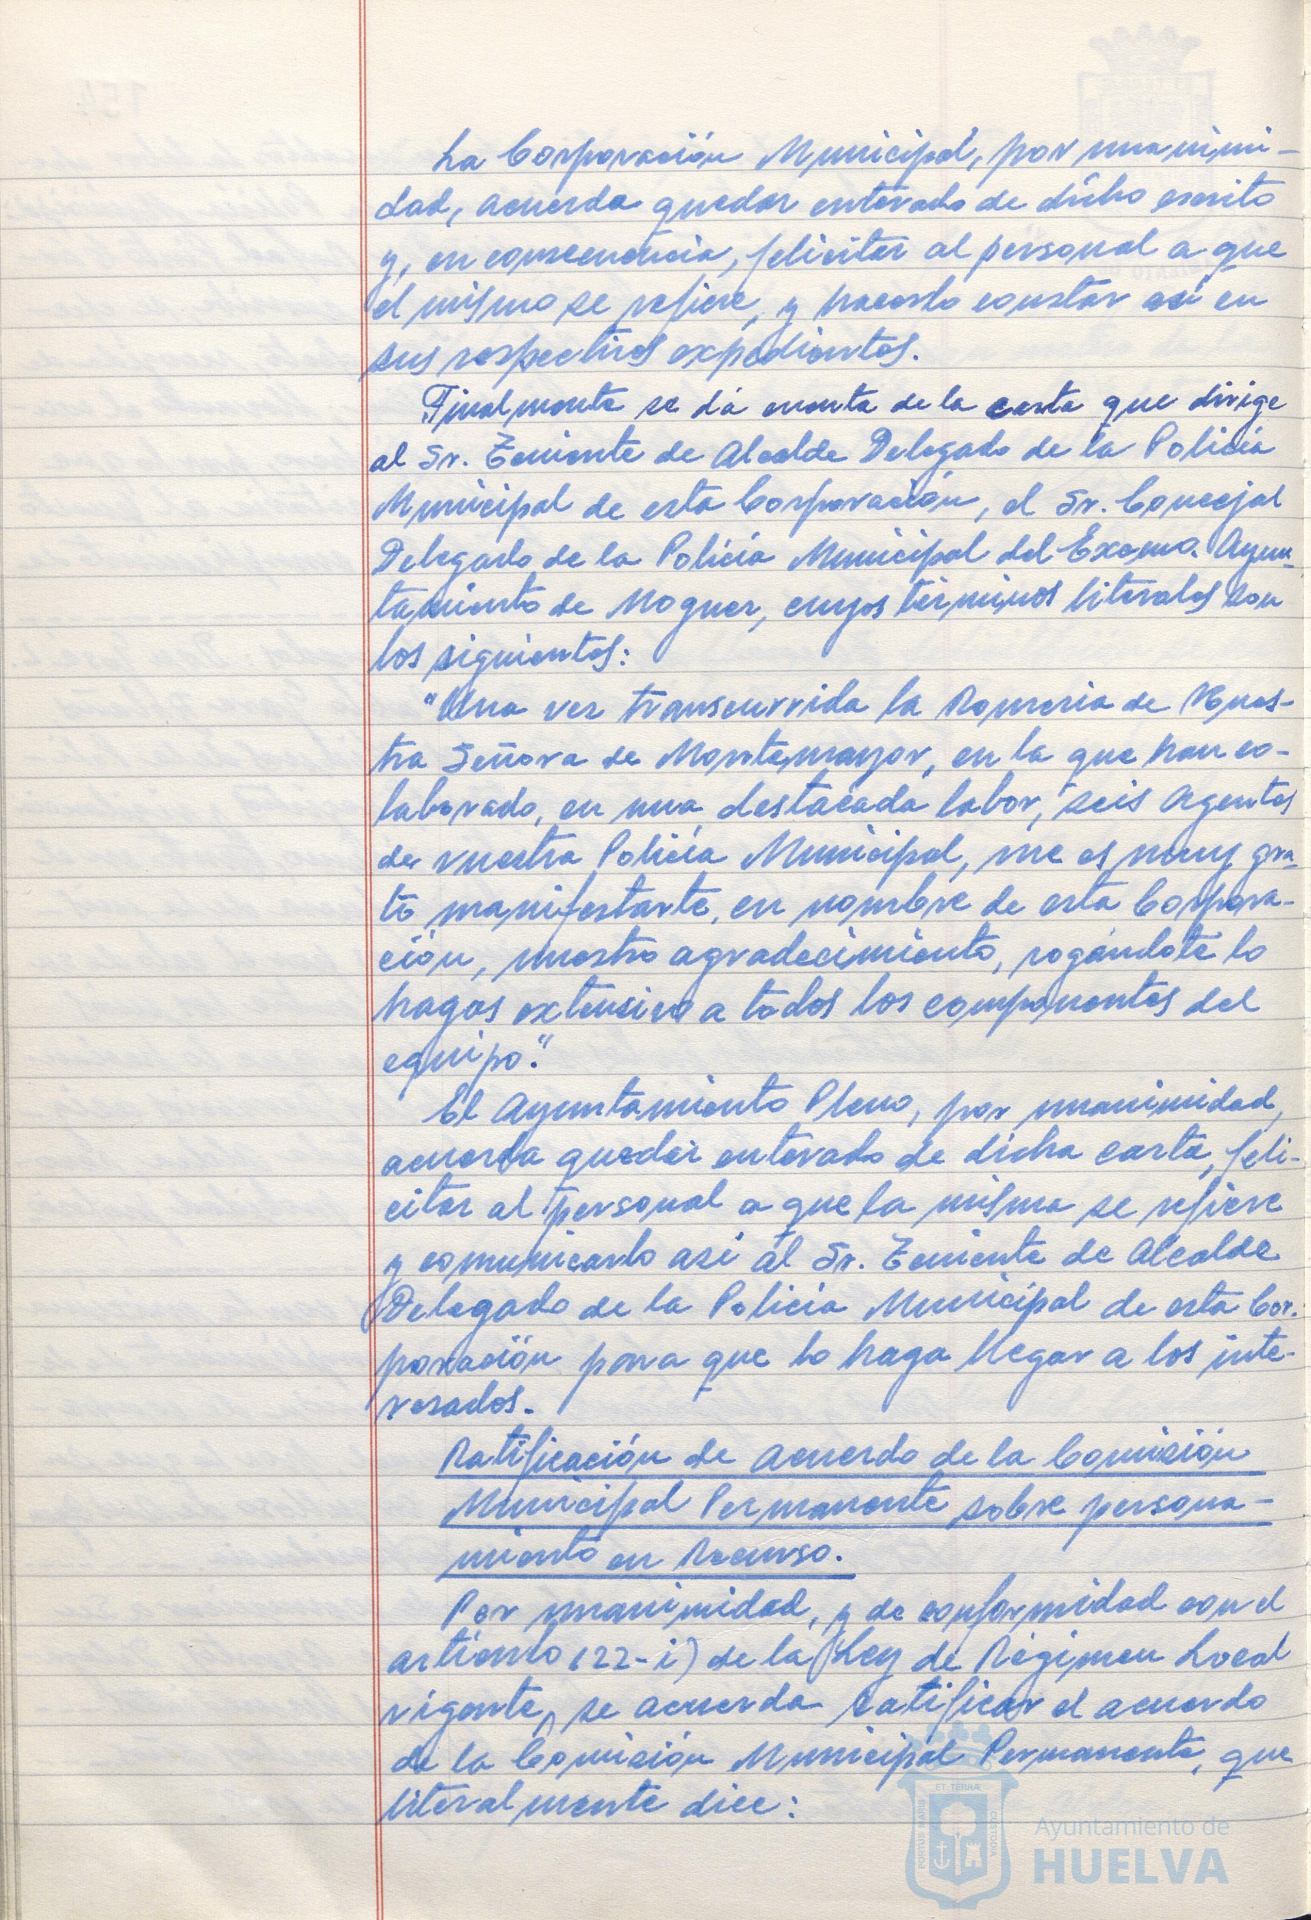 La Corporación Municipal, por unanimi-
dad, acuerda quedar enterado de dicho escrito
y, en consecuencia, felicitar al personal a que
el mismo se refiere, y hacerlo constar así en
sus respectivos expedientes.
Finalmente se dá cuenta de la carta que dirige
al Sr. Teniente de Alcalde Delegado de la Policía
Municipal de esta Corporación, el Sr. Concejal
Delegado de la Policía Municipal del Excmo. Ayun-
tamiento de Moguer, cuyos términos literales son
los siguientes:
"Una vez transcurrida la Romería de Nues-
tra Señora de Montemayor, en la que han co-
laborado, en una destacada labor, seis Agentes
de vuestra Policía Municipal, me es muy gra-
to manifestarte, en nombre de esta Corpora-
ción, nuestro agradecimiento, rogándote lo
hagas extensivo a todos los componentes del
equipo."
El Ayuntamiento Pleno, por unanimidad,
acuerda quedar enterado de dicha carta, feli-
citar al personal a que la misma se refiere
y comunicarlo así al Sr. Teniente de Alcalde
Delegado de la Policía Municipal de esta Cor-
poración para que lo haga llegar a los inte-
resados.-
Ratificación de acuerdo de la Comisión
Municipal Permanente sobre persona-
miento en Recurso.
Por unanimidad, y de conformidad con el
artículo 122-i) de la Ley de Régimen Local
vigente, se acuerda ratificar el acuerdo
de la Comisión Municipal Permanente, que
literalmente dice:
ET TERRÆ
PORTUS MARIS
CUSTODIA
Ayuntamiento de
HUELVA